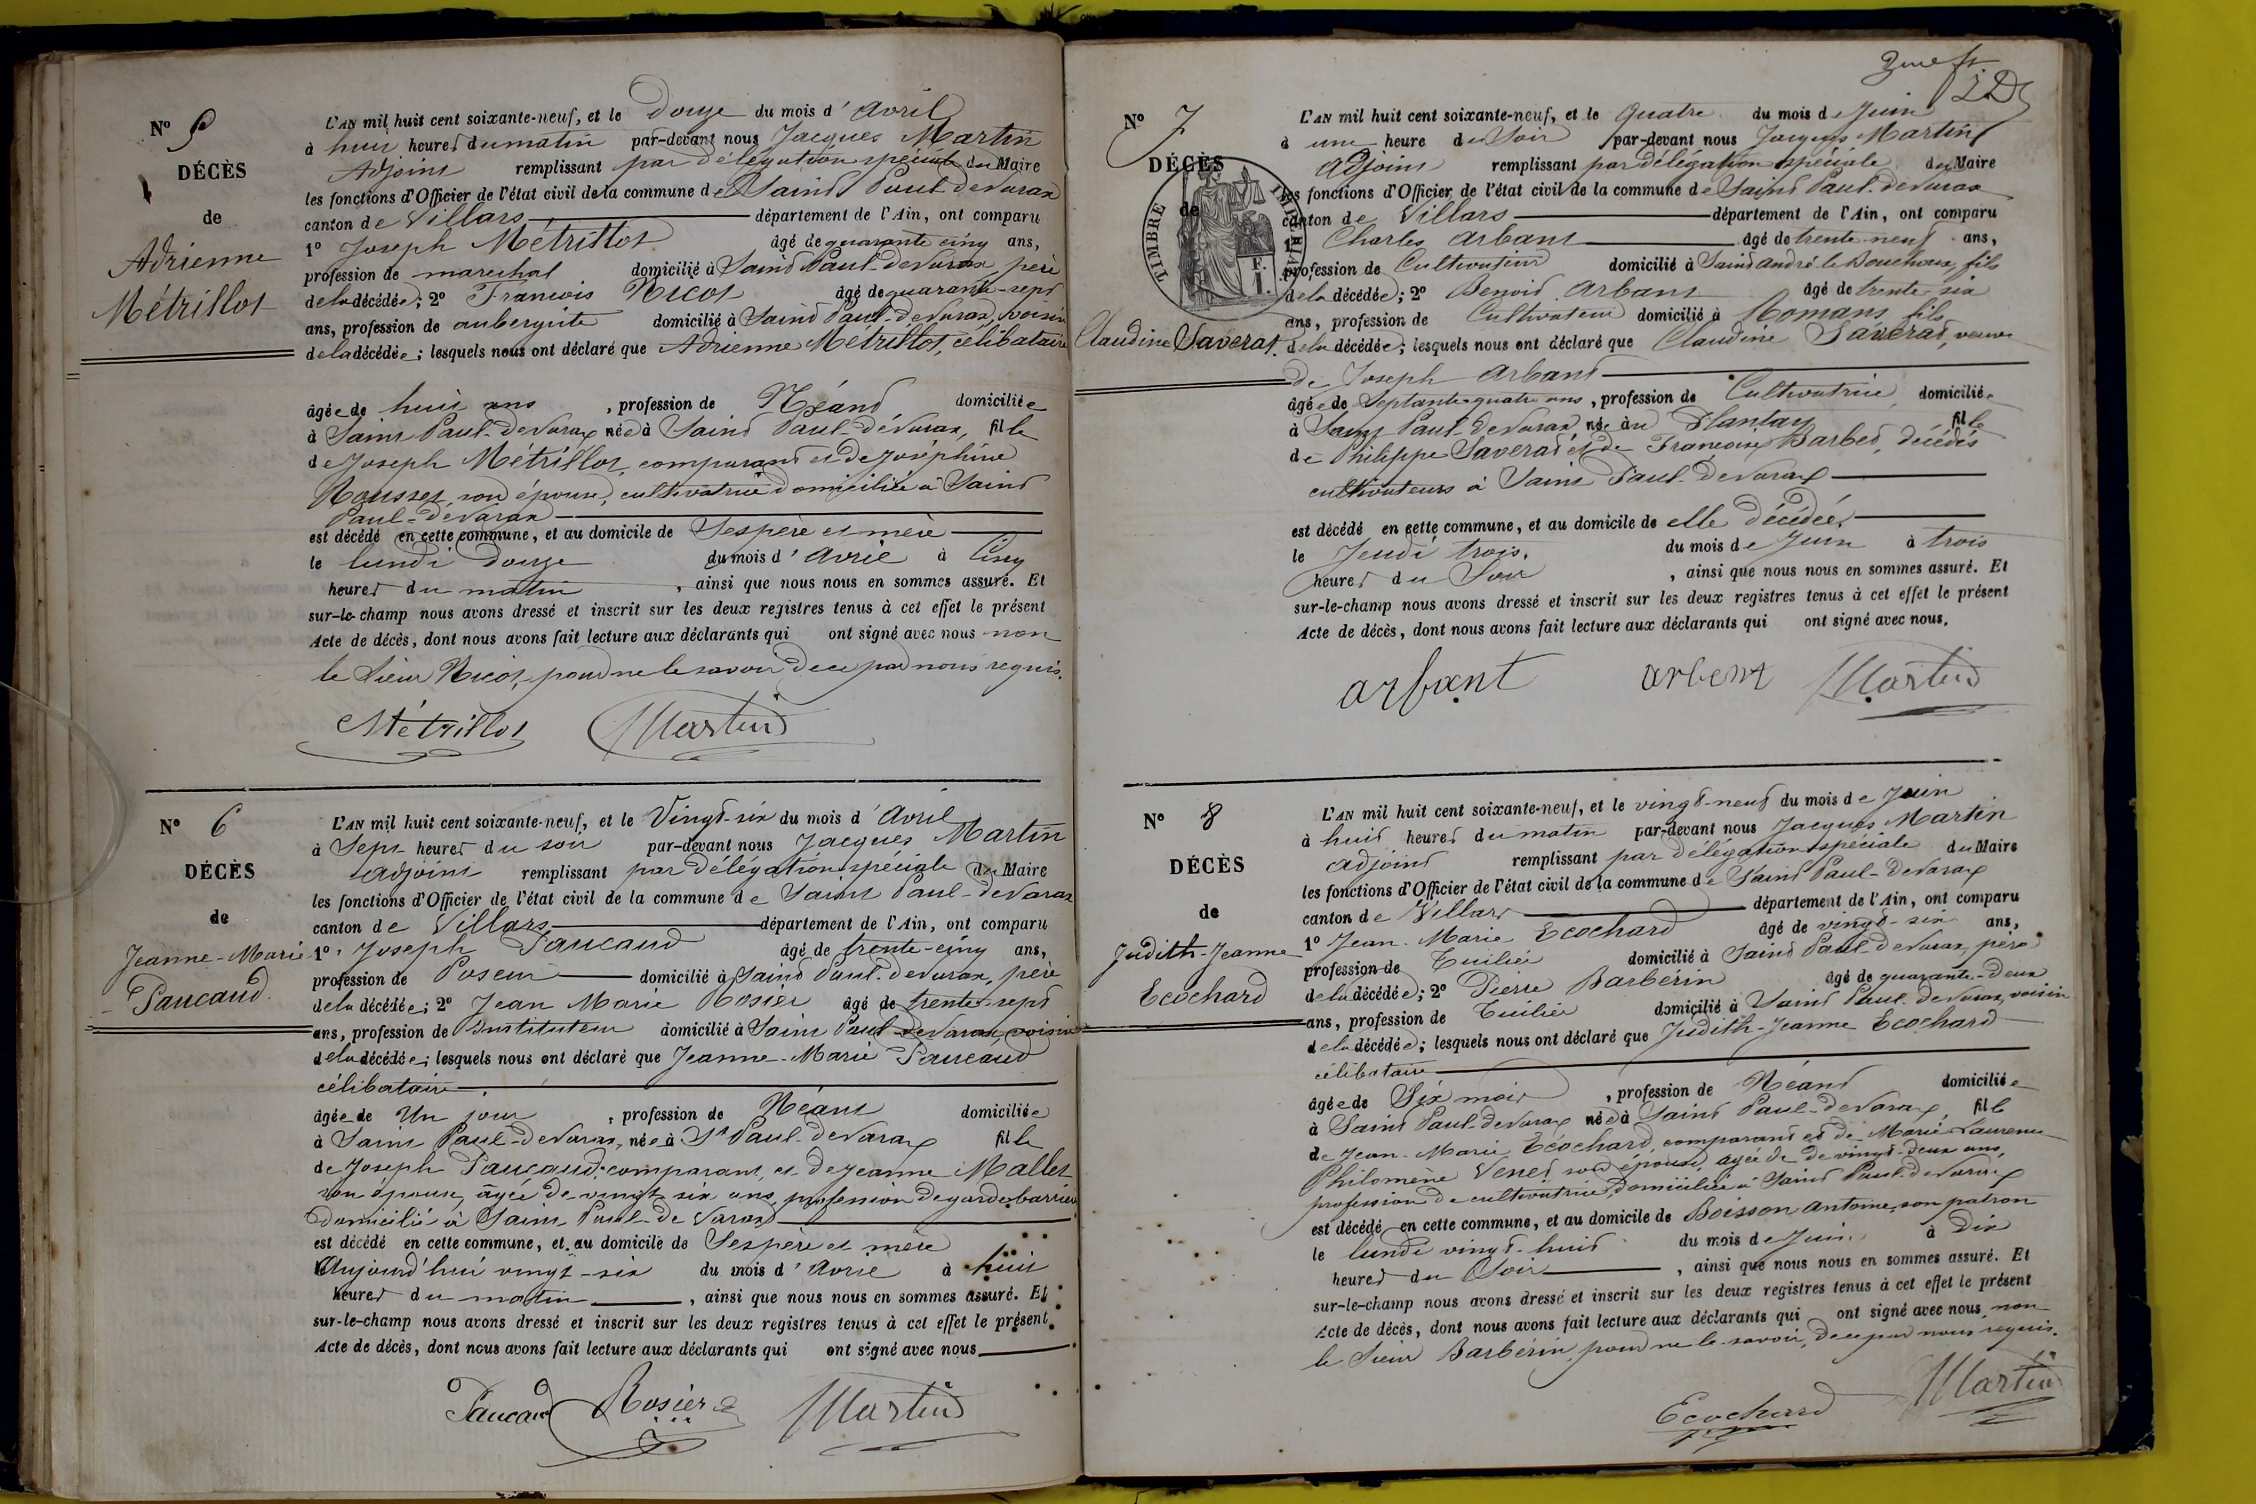 N° 5
DÉCÈS
de
Adrienne
Métrillot
L'AN mil huit cent soixante-neuf, et le Douze du mois d'avril
à huit heures du matin par-devant nous Jacques Martin
Adjoint remplissant par délégation spéciale du Maire
les fonctions d'Officier de l'état civil de la commune de Saint Paul-de Varax
canton de Villars département de l'Ain, ont comparu
1° Joseph Métrillot âgé de quarante cinq ans,
profession de maréchal domicilié à Saint Paul-de Varax, père
de la décédée; 2° François Nicot âgé de quarante-sept
ans, profession de aubergiste domicilié à Saint Paul-de Varax, voisin
de la décédée; lesquels nous ont déclaré que Adrienne Métrillot, célibataire
âgée de huit ans, profession de Néant domiciliée
à Saint Paul-de Varax née à Saint Paul-de Varax, fille
de Joseph Métrillot, comparant et de Joséphine
Rousset, son épouse, cultivatrice domiciliée à Saint
Paul-de Varax
est décédé en cette commune, et au domicile de Ses père et mère
le lundi douze du mois d'avril à Cinq
heures du matin, ainsi que nous nous en sommes assuré. Et
sur-le-champ nous avons dressé et inscrit sur les deux registres tenus à cet effet le présent
Acte de décès, dont nous avons fait lecture aux déclarants qui ont signé avec nous non
le Sieur Nicot, pour ne le savoir de ce par nous requis.
Métrillot Martin
N° 6
DÉCÈS
de
Jeanne-Marie
Paucaud.
L'AN mil huit cent soixante-neuf, et le Vingt-six du mois d'avril
à Sept heures du soir par-devant nous Jacques Martin
adjoint remplissant par délégation spéciale du Maire
les fonctions d'Officier de l'état civil de la commune de Saint Paul-de Varax
canton de Villars département de l'Ain, ont comparu
1° Joseph Paucaud âgé de trente-cinq ans,
profession de Poseur domicilié à Saint Paul-de Varax, père
de la décédée; 2° Jean Marie Rosier âgé de trente-sept
ans, profession de Instituteur domicilié à Saint Paul-de Varax, voisin
de la décédée; lesquels nous ont déclaré que Jeanne-Marie Paucaud
célibataire
âgée de Un jour, profession de Néant domiciliée
à Saint Paul-de Varax, née à St Paul-de Varax fille
de Joseph Paucaud, comparant, et de Jeanne Mallet
son épouse, âgée de vingt-six ans, profession de garde barrière
domicilié à Saint Paul-de Varax
est décédé en cette commune, et au domicile de Ses père et mère
Aujourd'hui vingt-six du mois d'avril à huit
heures du matin, ainsi que nous nous en sommes assuré. Et
sur-le-champ nous avons dressé et inscrit sur les deux registres tenus à cet effet le présent
Acte de décès, dont nous avons fait lecture aux déclarants qui ont signé avec nous
Paucaud Rosier Martin
N° 7
DÉCÈS
de
TIMBRE IMPERIAL
Claudine Saverat.
L'AN mil huit cent soixante-neuf, et le Quatre du mois de Juin
à une heure du Soir par-devant nous Jacques Martin
adjoint remplissant par délégation spéciale du Maire
les fonctions d'Officier de l'état civil de la commune de Saint Paul-de Varax
canton de Villars département de l'Ain, ont comparu
1° Charles Arbant âgé de trente-neuf ans,
profession de Cultivateur domicilié à Saint André-le Bouchoux, fils
de la décédée; 2° Benoit Arbant âgé de trente-six
ans, profession de Cultivateur domicilié à Romans fils
de la décédée; lesquels nous ont déclaré que Claudine Saverat, veuve
de Joseph Arbant
âgée de Septante-quatre ans, profession de Cultivatrice domiciliée
à Saint Paul-de Varax née au Plantay fille
de Philippe Saverat et de Françoise Barbet, décédés
cultivateurs à Saint Paul-de Varax
est décédé en cette commune, et au domicile de elle décédée,
le Jeudi trois, du mois de Juin à trois
heures du Soir, ainsi que nous nous en sommes assuré. Et
sur-le-champ nous avons dressé et inscrit sur les deux registres tenus à cet effet le présent
Acte de décès, dont nous avons fait lecture aux déclarants qui ont signé avec nous.
arbant arbent Martin
N° 8
DÉCÈS
de
Judith-Jeanne
Ecochard
L'AN mil huit cent soixante-neuf, et le vingt-neuf du mois de Juin
à huit heures du matin par-devant nous Jacques Martin
adjoint remplissant par délégation spéciale du Maire
les fonctions d'Officier de l'état civil de la commune de Saint Paul-de Varax
canton de Villars département de l'Ain, ont comparu
1° Jean-Marie Ecochard âgé de vingt-six ans,
profession de Tuilier domicilié à Saint Paul-de Varax, père
de la décédée; 2° Pierre Barbérin âgé de quarante-deux
ans, profession de Tuilier domicilié à Saint Paul-de Varax, voisin
de la décédée; lesquels nous ont déclaré que Judith-Jeanne Ecochard
célibataire
âgée de Six mois, profession de Néant domiciliée
à Saint Paul-de Varax née à Saint Paul-de Varax, fille
de Jean-Marie Ecochard, comparant et de Marie-Laurence
Philomène Venet son épouse, agée de vingt-deux ans,
profession de cultivatrice, domiciliée à Saint Paul-de Varax
est décédé en cette commune, et au domicile de Boisson Antoine, son patron
le lundi vingt-huit du mois de Juin à Dix
heures du Soir, ainsi que nous nous en sommes assuré. Et
sur-le-champ nous avons dressé et inscrit sur les deux registres tenus à cet effet le présent
Acte de décès, dont nous avons fait lecture aux déclarants qui ont signé avec nous non
le Sieur Barbérin, pour ne le savoir, de ce par nous requis.
Ecochard Martin